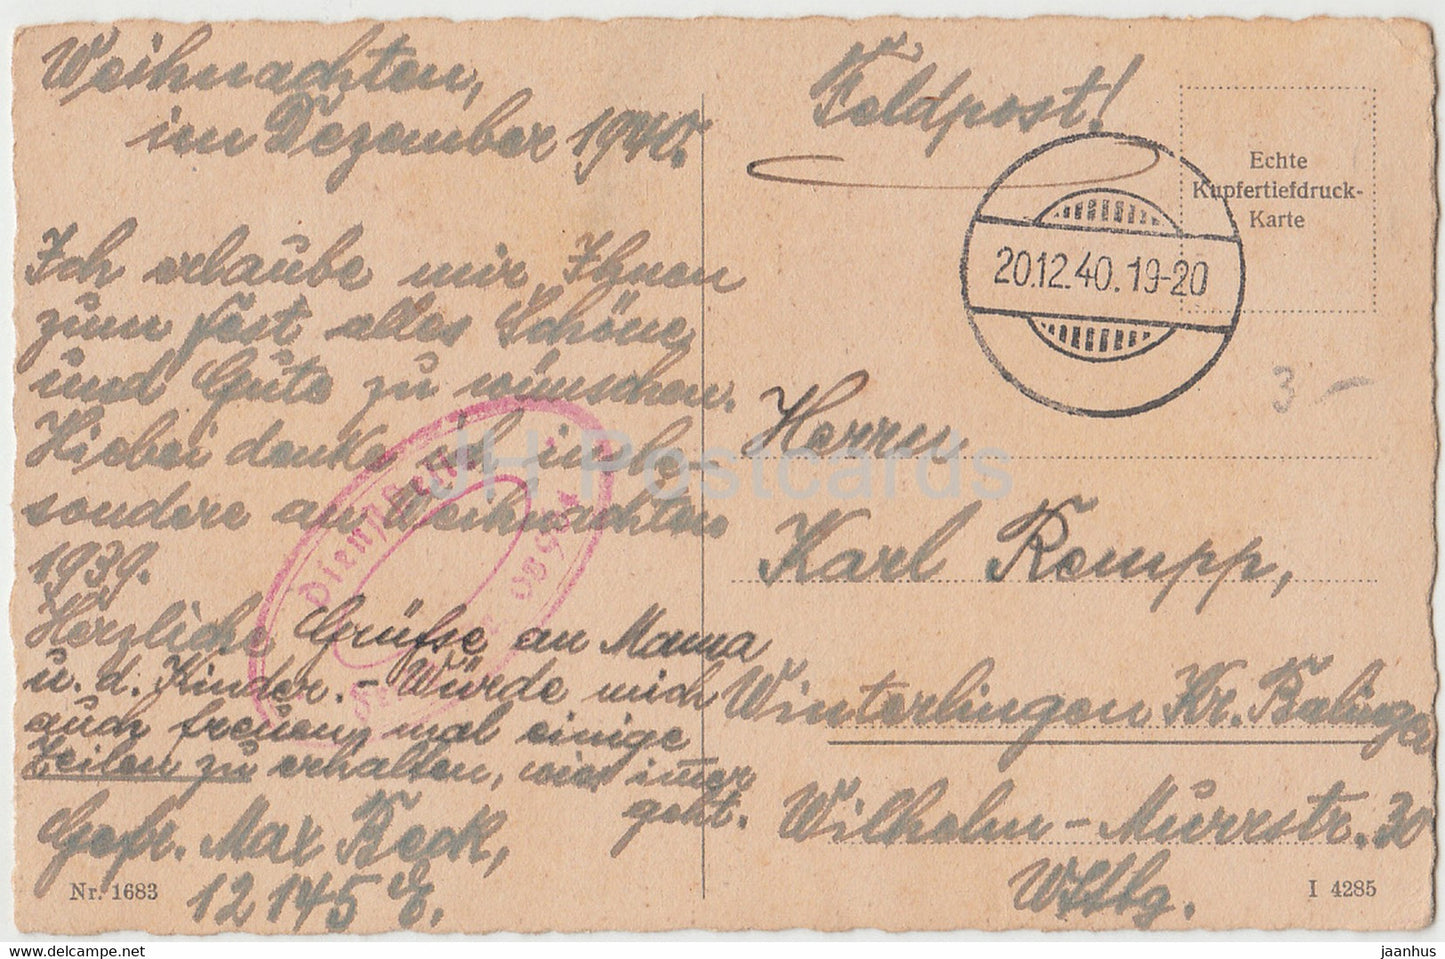 Weihnachten,
im Dezember 1940.
Ich erlaube mir, Ihnen
zum Fest alles Schöne
und Gute zu wünschen.
Hiebei denke ich insbe-
sondere an Weihnachten
1939.
Herzliche Grüße an Mama
u. d. Kinder. - Würde mich
auch freuen, mal einige
Zeilen zu erhalten, wies im̄er
geht.
Gefr. Max Beck,
12145 E.
Nr. 1683
Feldpost!
Echte
Kupfertiefdruck-
Karte
20.12.40.19-20
3 -
Herrn
Karl Rempp,
Winterlingen Kr. Balingen
Wilhelm-Murrstr. 30
Wttbg.
I 4285
Dienststelle
JH Postcards
delcampe.net
jaanhus